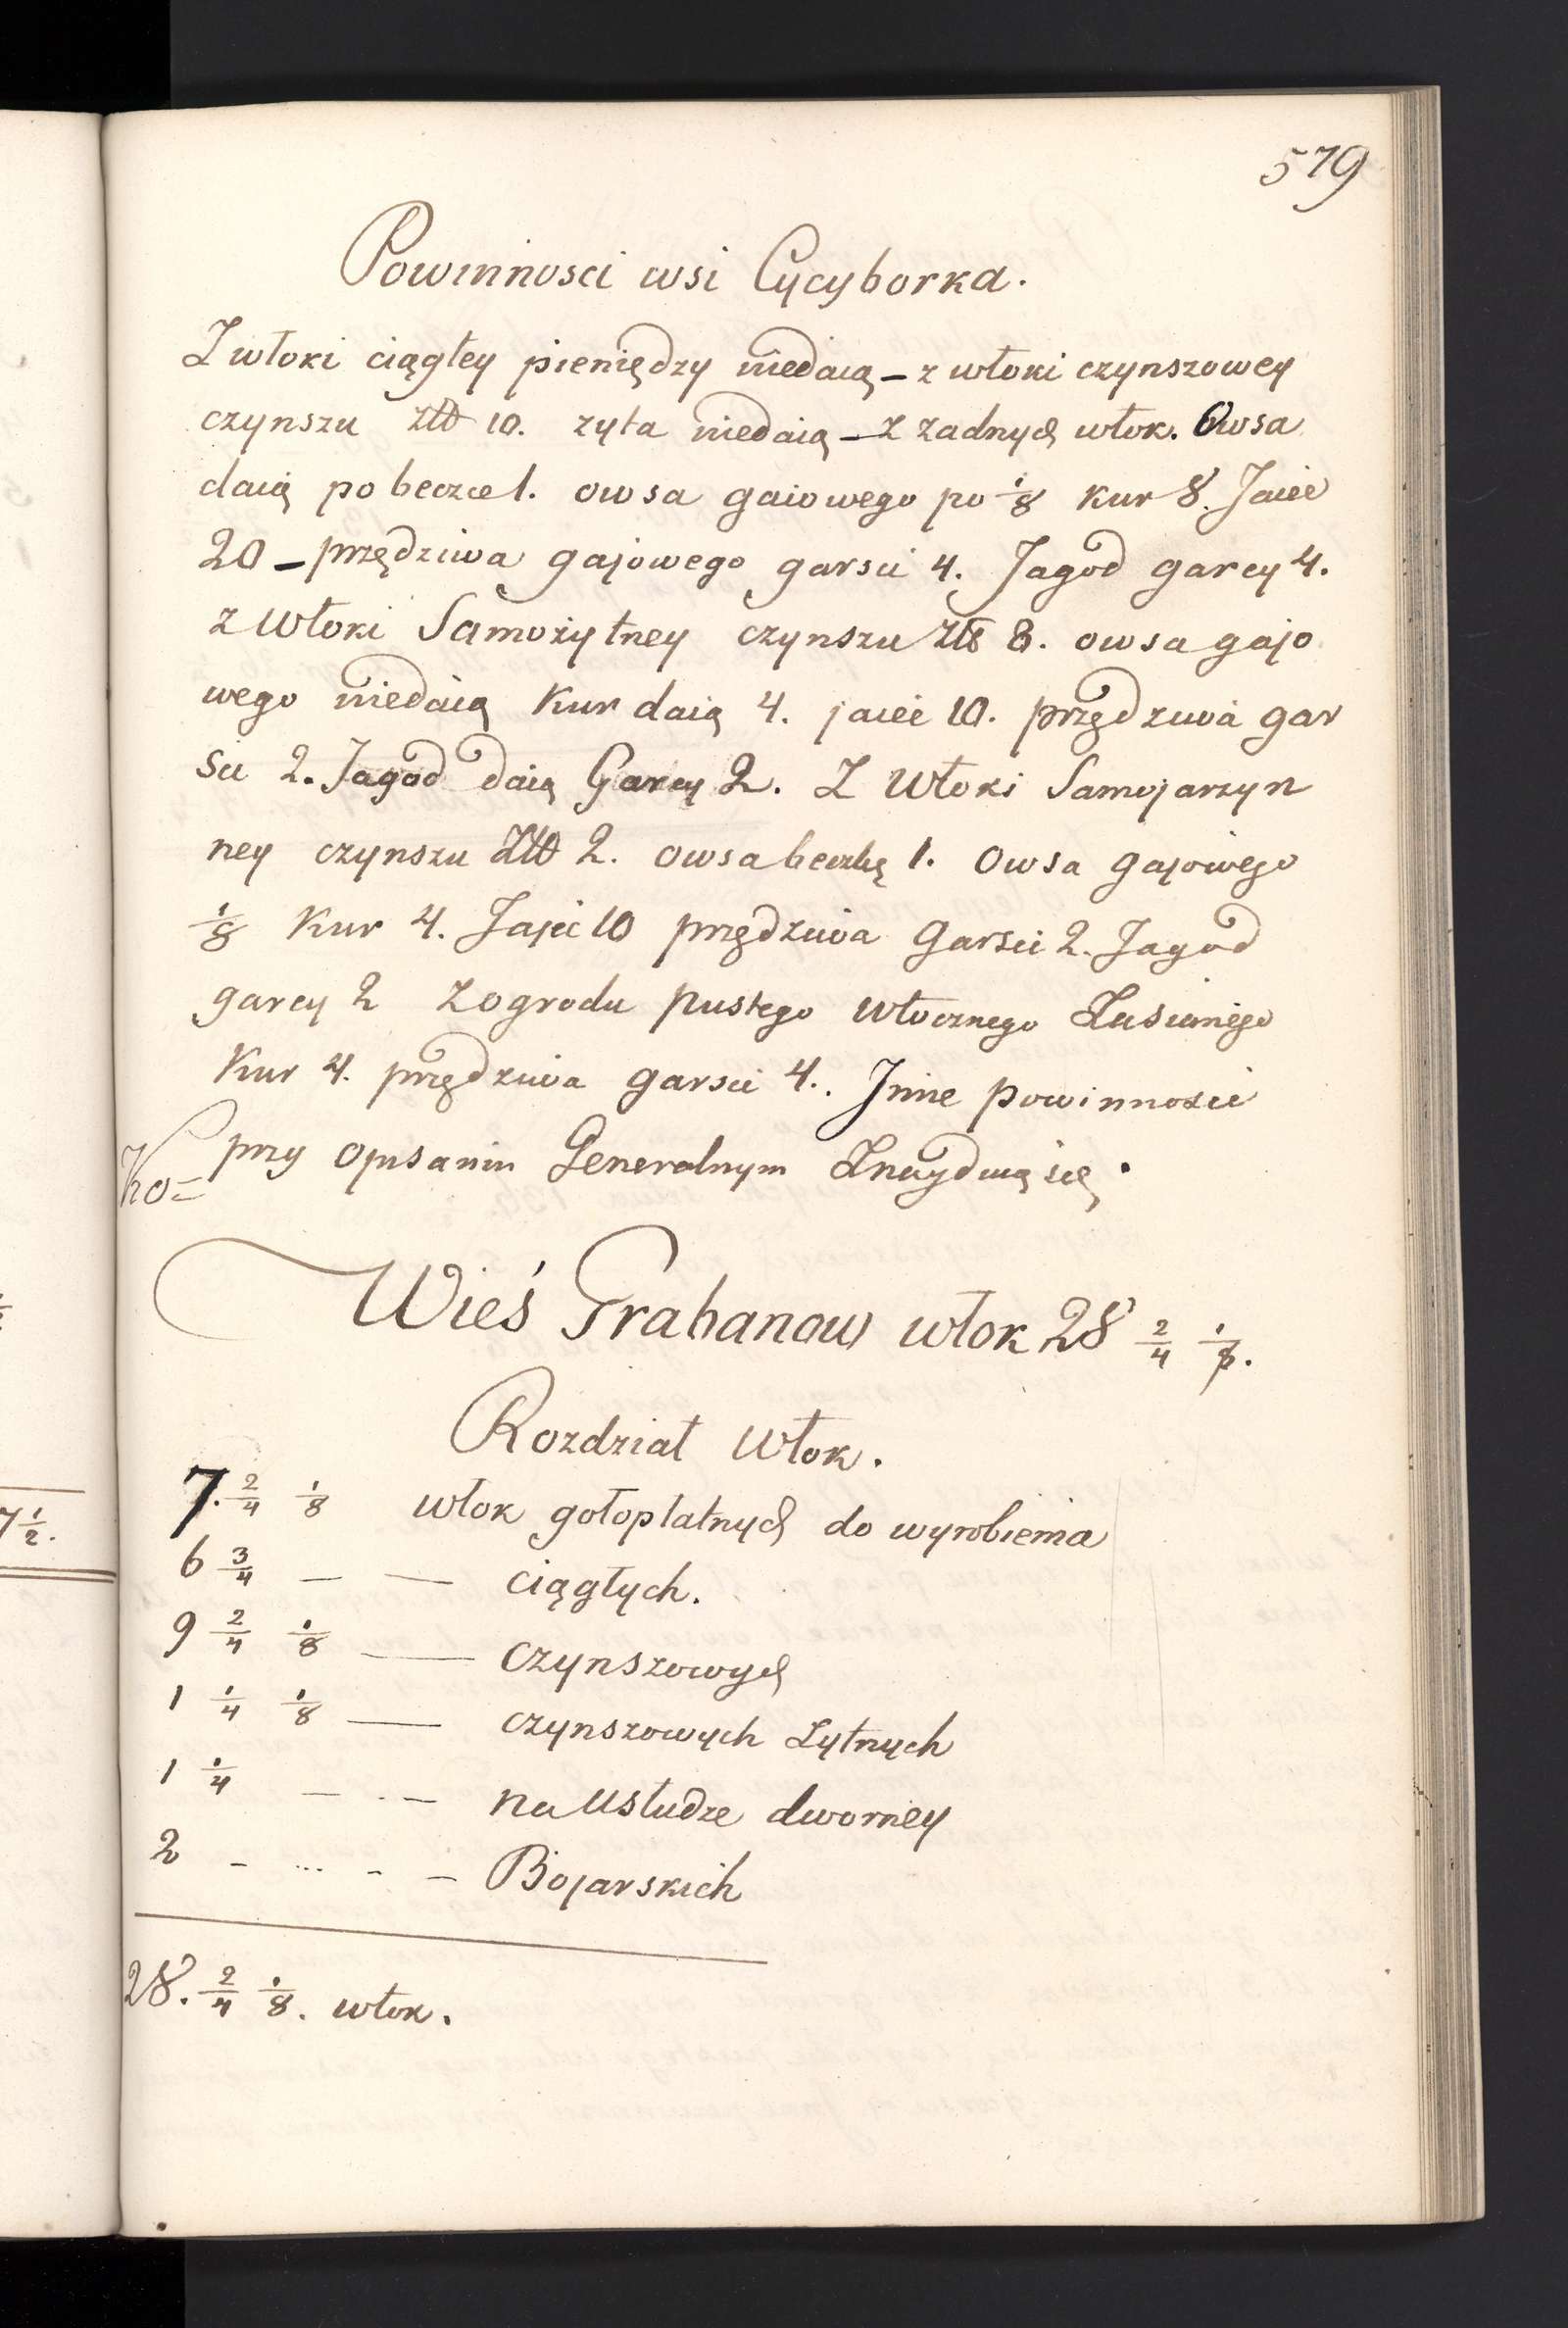 579
Powinnosci wsi Cycyborka.
Z włoki ciągłey pieniędzy niedaią – z włoki czynszowey
czynszu złt 10. zyta niedaią – z zadnych włok. Owsa
daią po beczce 1. owsa gaiowego po 1/8 kur 8. Jaiec
20 – przędziwa gajowego garsci 4. Jagod garcy 4.
z Włoki Samożytney czynszu złt 8. owsa gajo
wego niedaią Kur daią 4. jaiec 10. przędziwa gar
sci 2. Jagod daią Garcy 2. Z Włoki Samojarzyn
ney czynszu złt 2. owsa beczkę 1. Owsa gajowego
1/8 Kur 4. Jajec 10 przędziwa Garsci 2. Jagod
garcy 2 Z ogrodu pustego włocznego
Kur 4. przędziwa garsci 4. Inne powinnosci
przy Opisaniu Generalnym Znaydują się.
Ko=
Wieś Grabanow włok 28 2/4 1/8.
Rozdział Włok.
7. 2/4 1/8 włok gołopłatnych do wyrobienia
6 3/4 — — ciągłych.
9 2/4 1/8 — czynszowych
1 1/4 1/8 — czynszowych Zytnych
1 1/4 — . — na Usłudze dworney
2 - ... - - Bojarskich
28. 2/4 1/8. włok.
7 1/2.